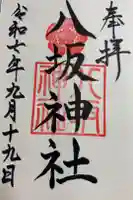 奉拝
八坂神社
令和七年九月十九日